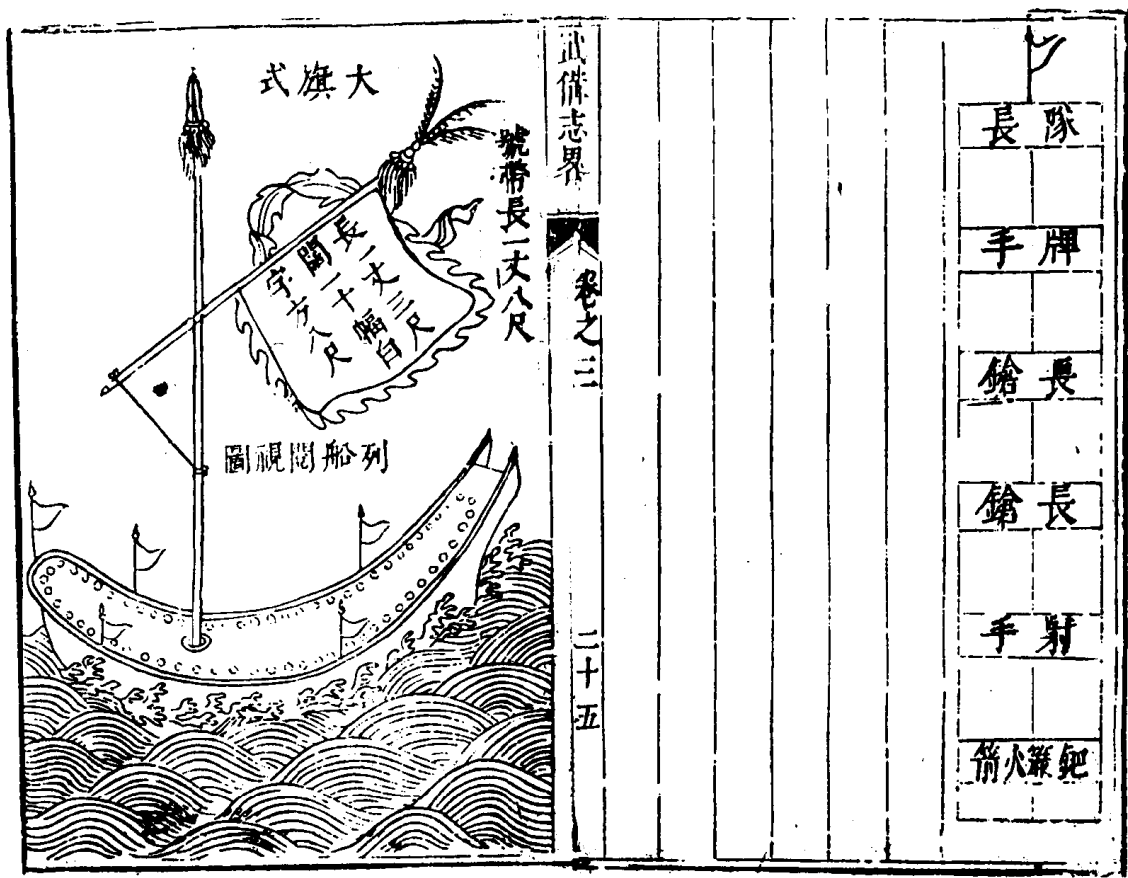 隊長
牌手
長鎗
長鎗
射手
鈀火箭
武俻志畧
卷之三
二十五
號帶長一丈八尺
大旗式
長一丈三尺
闊一十幅白
字方八尺
列船閱視圖